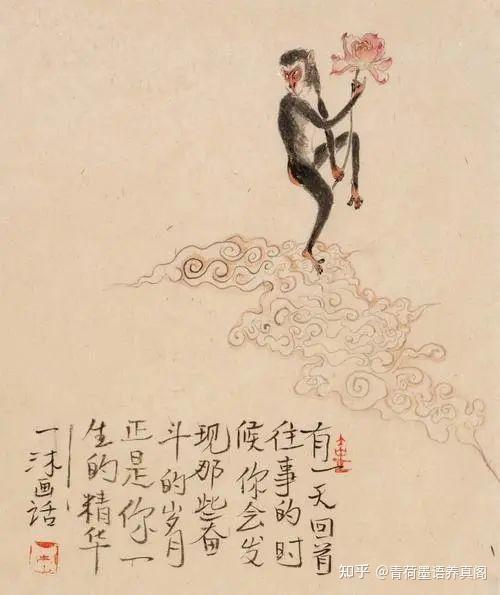 有一天回首
往事的时
候你会发
现那些奋
斗的岁月
正是你一
生的精华
一沐画话
知乎 @青荷墨语养真阁